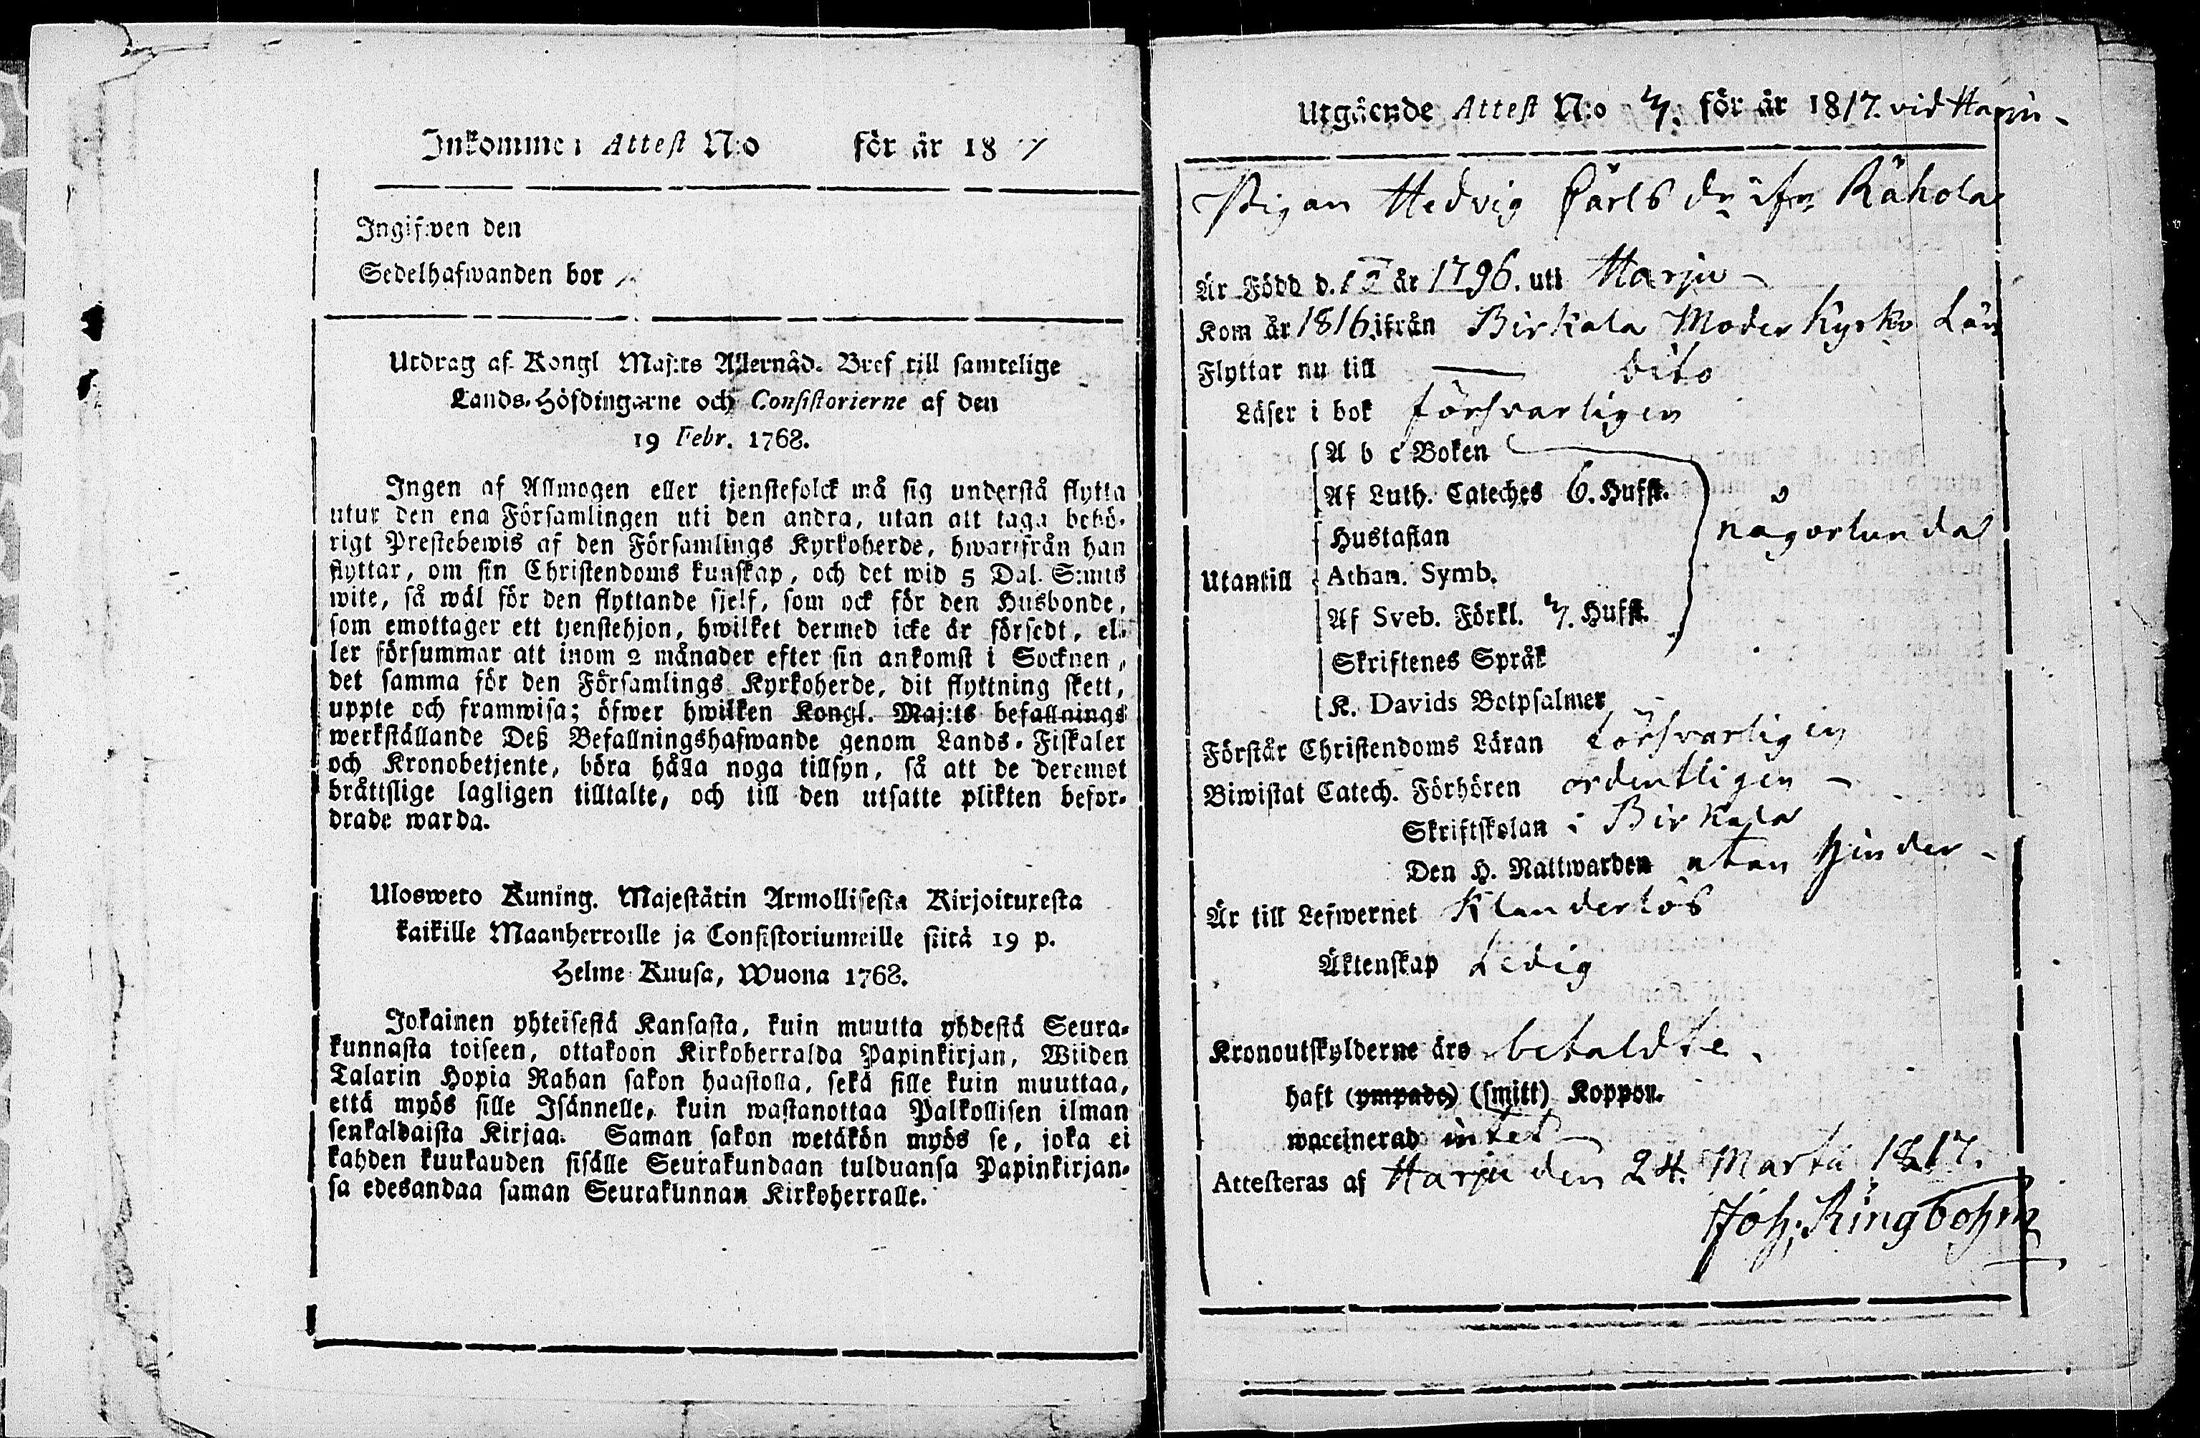 Inkommen Attest N:o för år 18 17
Ingifwen den
Sedelhafwanden bor
Utdrag af Kongl Maj:ts Allernåd. Bref till samtelige
Lands-Höfdingarne och Consistorierne af den
19 Febr. 1768.
Ingen af Allmogen eller tjenstefolck må sig understå flytta
utur den ena Församlingen uti den andra, utan att taga behö-
rigt Prestebewis af den Församlings Kyrkoherde, hwarifrån han
flyttar, om sin Christendoms kunskap, och det wid 5 Dal. S:mts
wite, så wäl för den flyttande sjelf, som ock för den Husbonde,
som emottager ett tjenstehjon, hwilket dermed icke är försedt, el-
ler försummar att inom 2 månader efter sin ankomst i Socknen,
det samma för den Församlings Kyrkoherde, dit flyttning skett,
uppte och framwisa; öfwer hwilken Kongl. Maj:ts befallnings
werkställande Deß Befallningshafwande genom Lands-Fiskaler
och Kronobetjente, böra hålla noga tillsyn, så att de deremot
bråttslige lagligen tilltalte, och till den utsatte plikten befor-
drade warda.
Ulosweto Kuning. Majestätin Armollisesta Kirjoituxesta
kaikille Maanherroille ja Consistoriumeille siitä 19 p.
Helme Kuusa, Wuona 1768.
Jokainen yhteisestä Kansasta, kuin muutta yhdestä Seura-
kunnasta toiseen, ottakoon Kirkoherralda Papinkirjan, Wiiden
Talarin Hopia Rahan sakon haastolla, sekä sille kuin muuttaa,
että myös sille Isännelle, kuin wastanottaa Palkollisen ilman
senkaldaista Kirjaa. Saman sakon wetäkön myös se, joka ei
kahden kuukauden sisälle Seurakundaan tulduansa Papinkirjan-
sa edesandaa saman Seurakunnan Kirkoherralle.
Utgående Attest N:o 7. för år 1817. vid Harju
Pigan Hedvig Carls dr ifrn Rähola
Är Född d. 12 år 1796. uti Harju
Kom år 1816 ifrån Birkala Moder Kyrko Län
Flyttar nu till — dito
Läser i bok försvarligen
A b c Boken
Af Luth. Cateches 6. Hufst.
Hustaflan någorlunda
Utantill Athan. Symb.
Af Sveb. Förkl. 7. Hufst.
Skriftenes Språk
K. Davids Botpsalmer
Förstår Christendoms Läran försvarligen
Biwistat Catech. Förhören ordentligen
Skriftskolan i Birkala
Den H. Nattwarden utan hinder
Är till Lefwernet Klanderlös
Äktenskap Ledig
Kronoutskylderne äro betaldte.
haft (ympade) (smitt) Koppor.
waccinerad intet
Attesteras af Harju den 24. Martii 1817.
Joh: Ringbohm